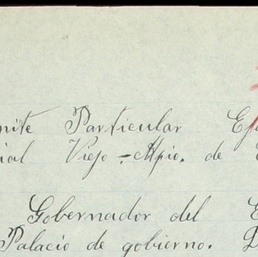 mite Particular Ej
ial Viejo-Mpio. de
Gobernador del E
Palacio de gobierno.